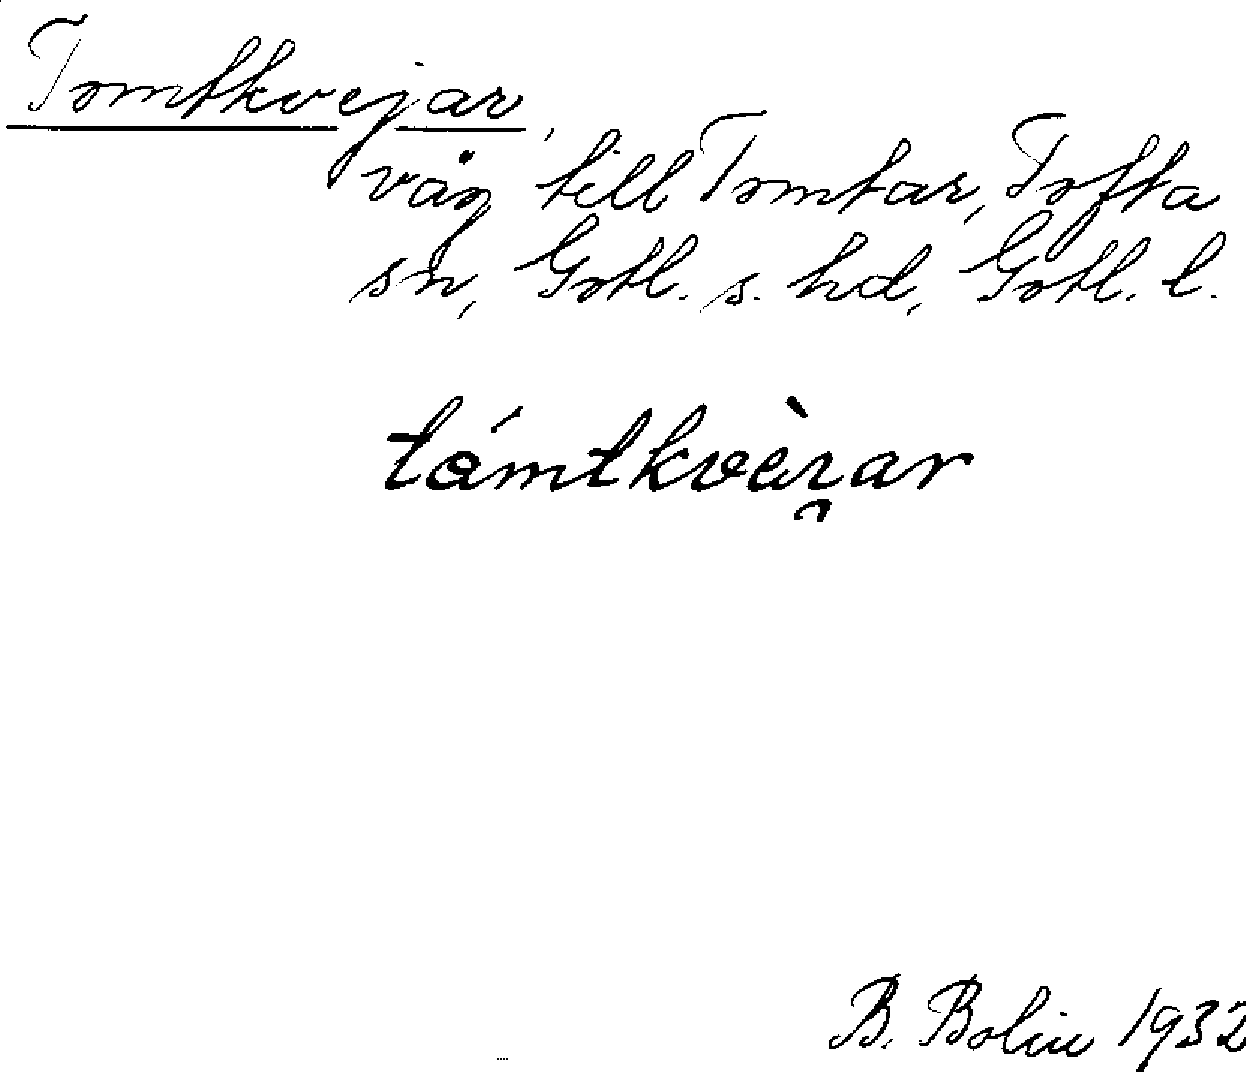 Tomtkvejar,
väg till Tomtar, Tofta
sn, Gotl. s. hd, Gotl. l.
B. Bolin 1932